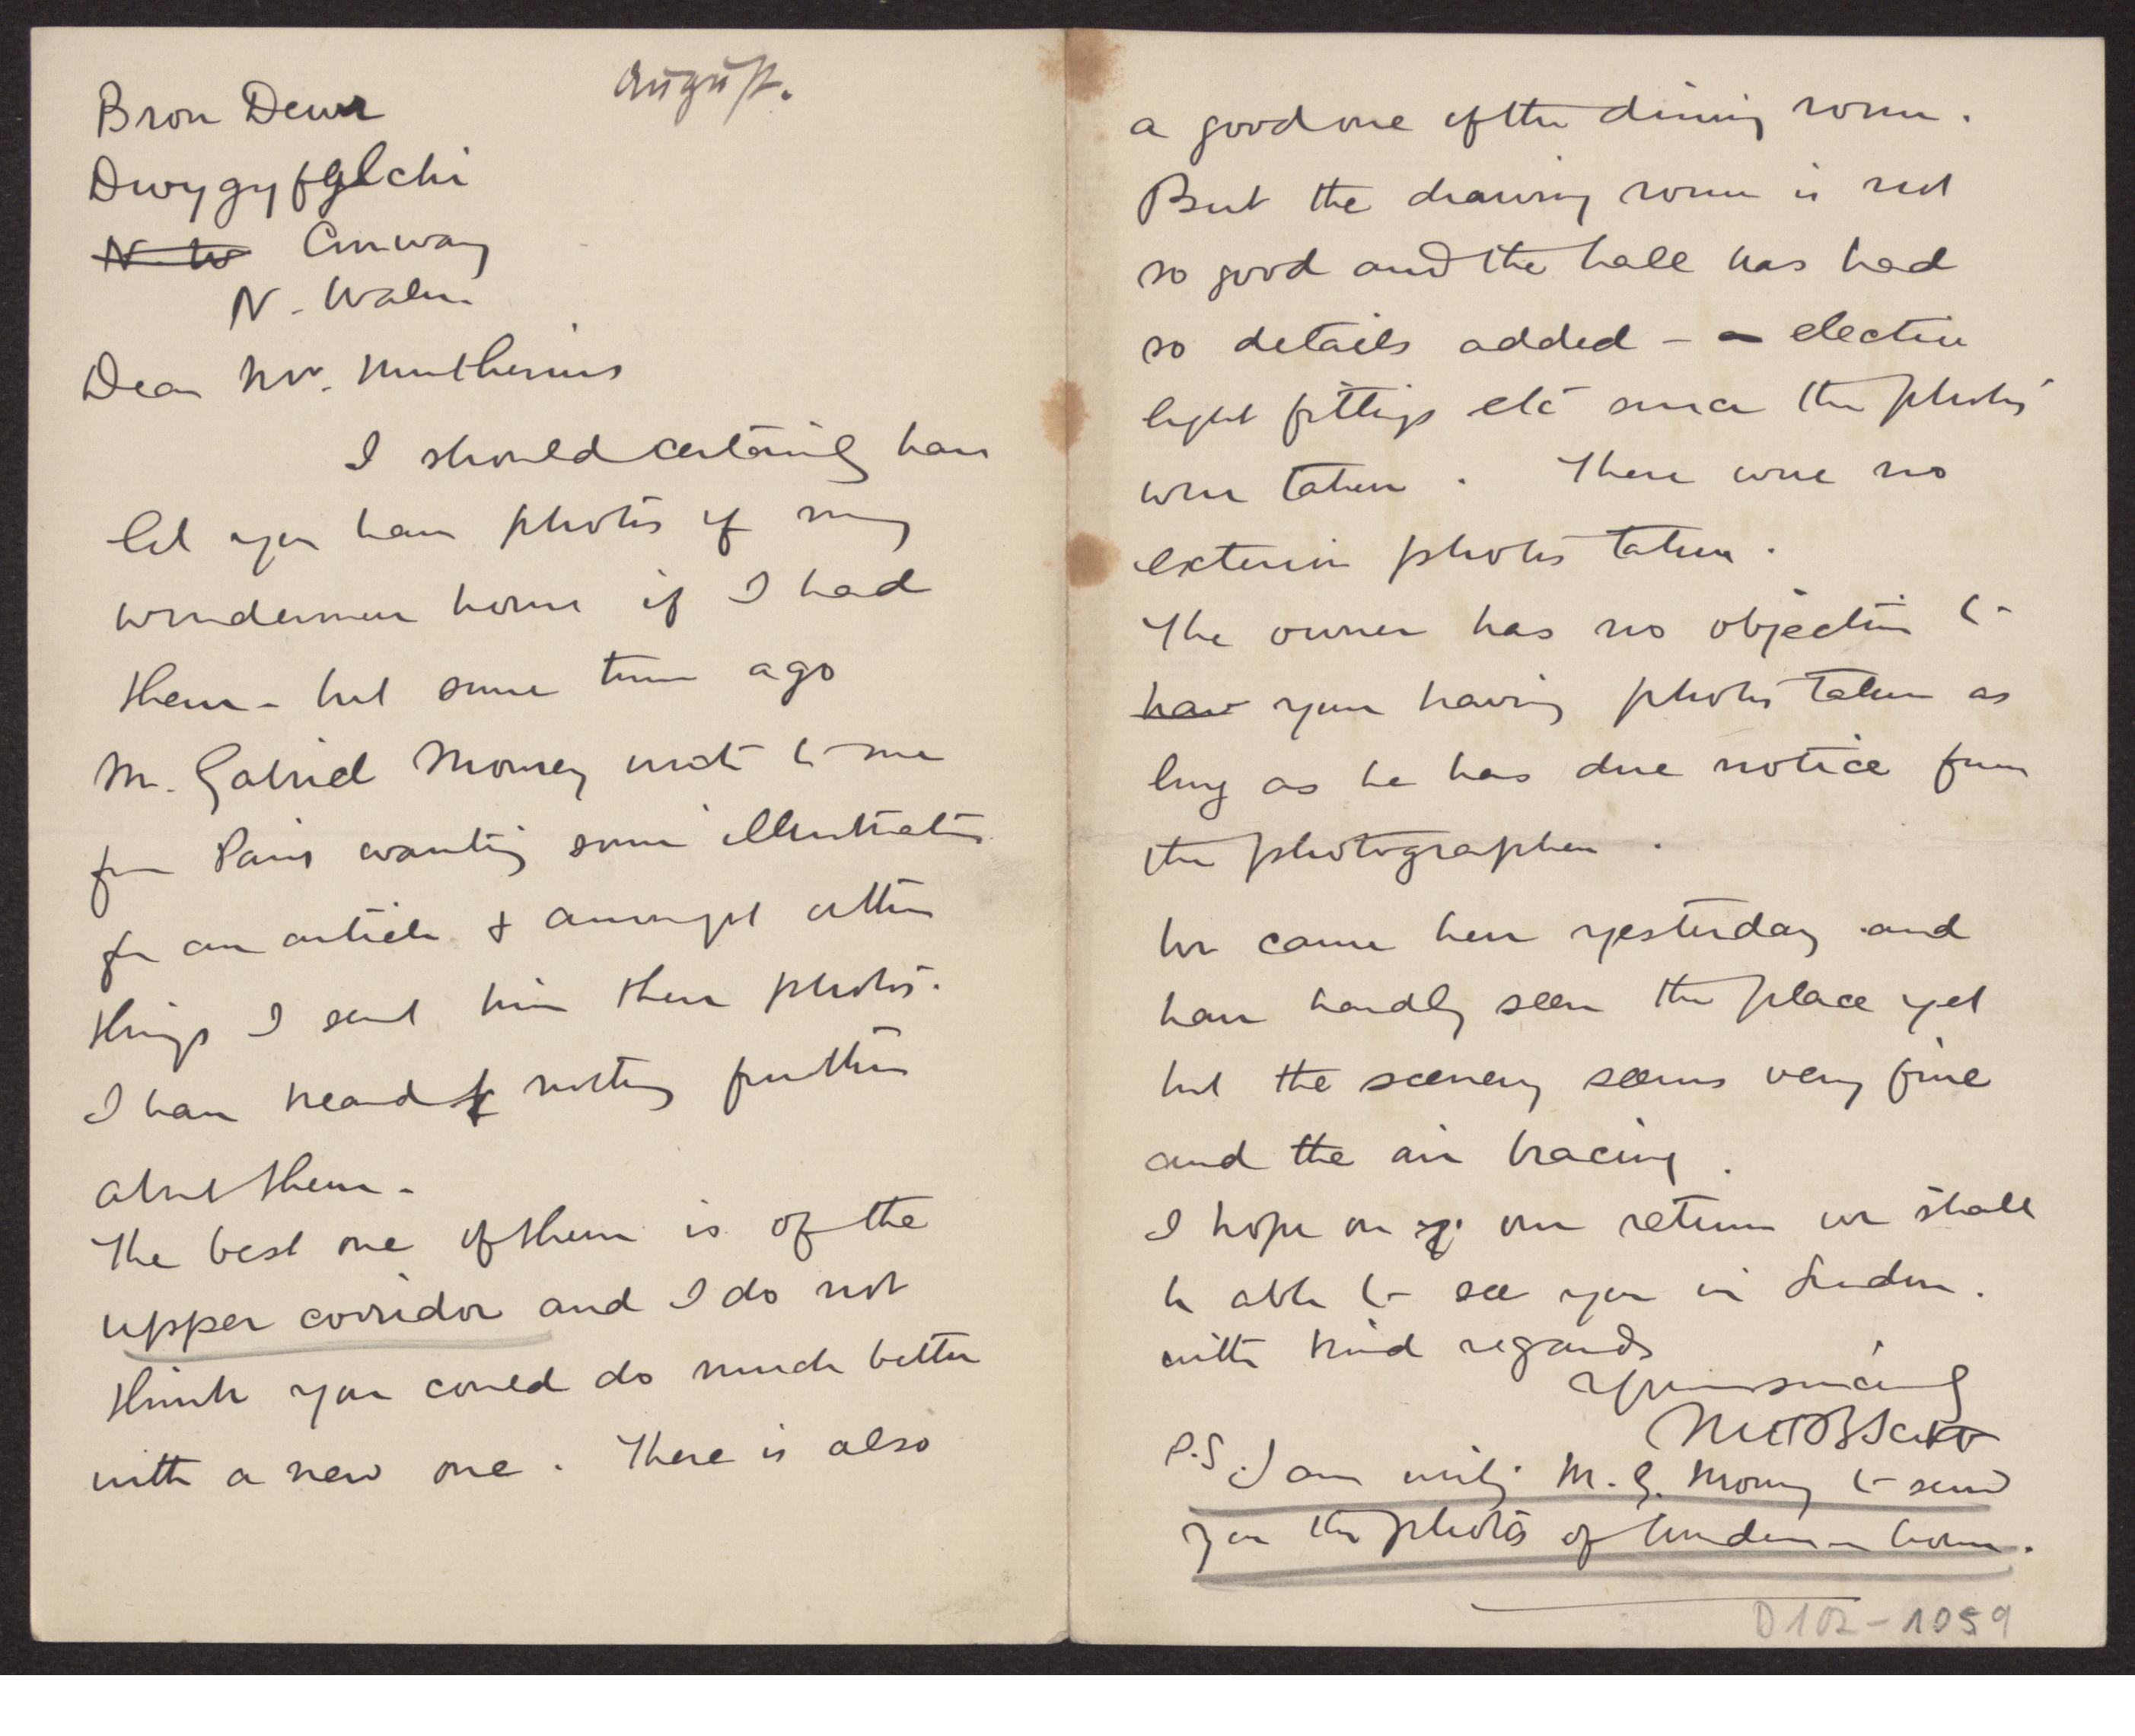 August.
Bron Dewr
Dwygyfylchi
N. W Conway
N. Wales
Dear Mr. Muthesius
I should certainly have
let you have photos of my
Windermere house if I had
them - but some time ago
M. Gabriel Mourey wrote to me
from Paris wanting some illustrations
for an article & amongst other
things I sent him these photos.
I have heard nothing further
about them.
The best one of them is of the
upper corridor and I do not
think you could do much better
with a new one. There is also
a good one of the dining room.
But the drawing room is not
so good and the hall has had
so details added - electric
light fittings etc since the photos
were taken. There were no
exterior photos taken.
The owner has no objection to
have your having photos taken as
long as he has due notice from
the photographer.
We came here yesterday and
have hardly seen the place yet
but the scenery seems very fine
and the air bracing.
I hope on our return we shall
be able to see you in London.
with kind regards
Yours sincerely
M H Baillie Scott
P.S. I am writing M. G. Mourey to send
you the photos of Windermere house.
D102-1059